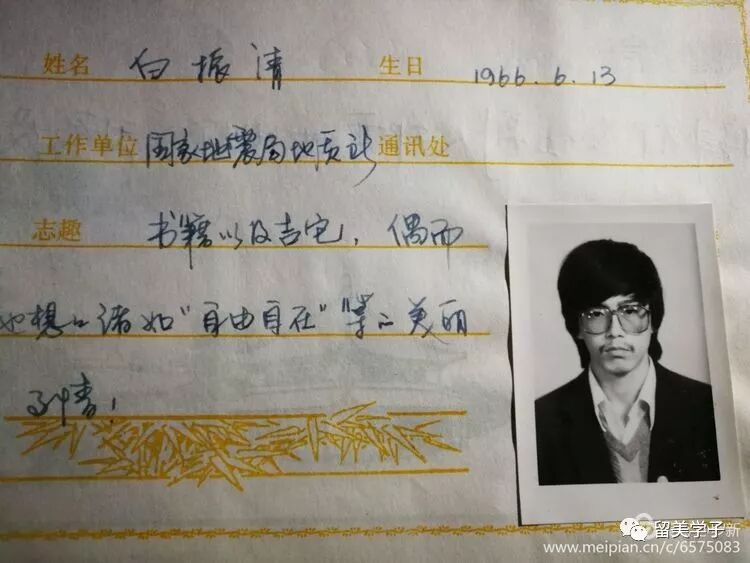 姓名 白振清 生日 1966.6.13
工作单位 国家地震局地质所 通讯处
志趣 书籍以及吉它，偶而
也想些诸如"自由自在"等的美丽
事情！
留美学子 新
www.meipian.cn/c/6575083